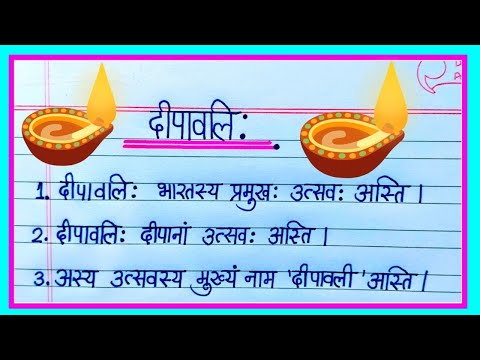 दीपावलि:
1. दीपावलि: भारतस्य प्रमुख: उत्सव: अस्ति ।
2. दीपावलि: दीपानां उत्सव: अस्ति ।
3. अस्य उत्सवस्य मुख्यं नाम 'दीपावली' अस्ति ।